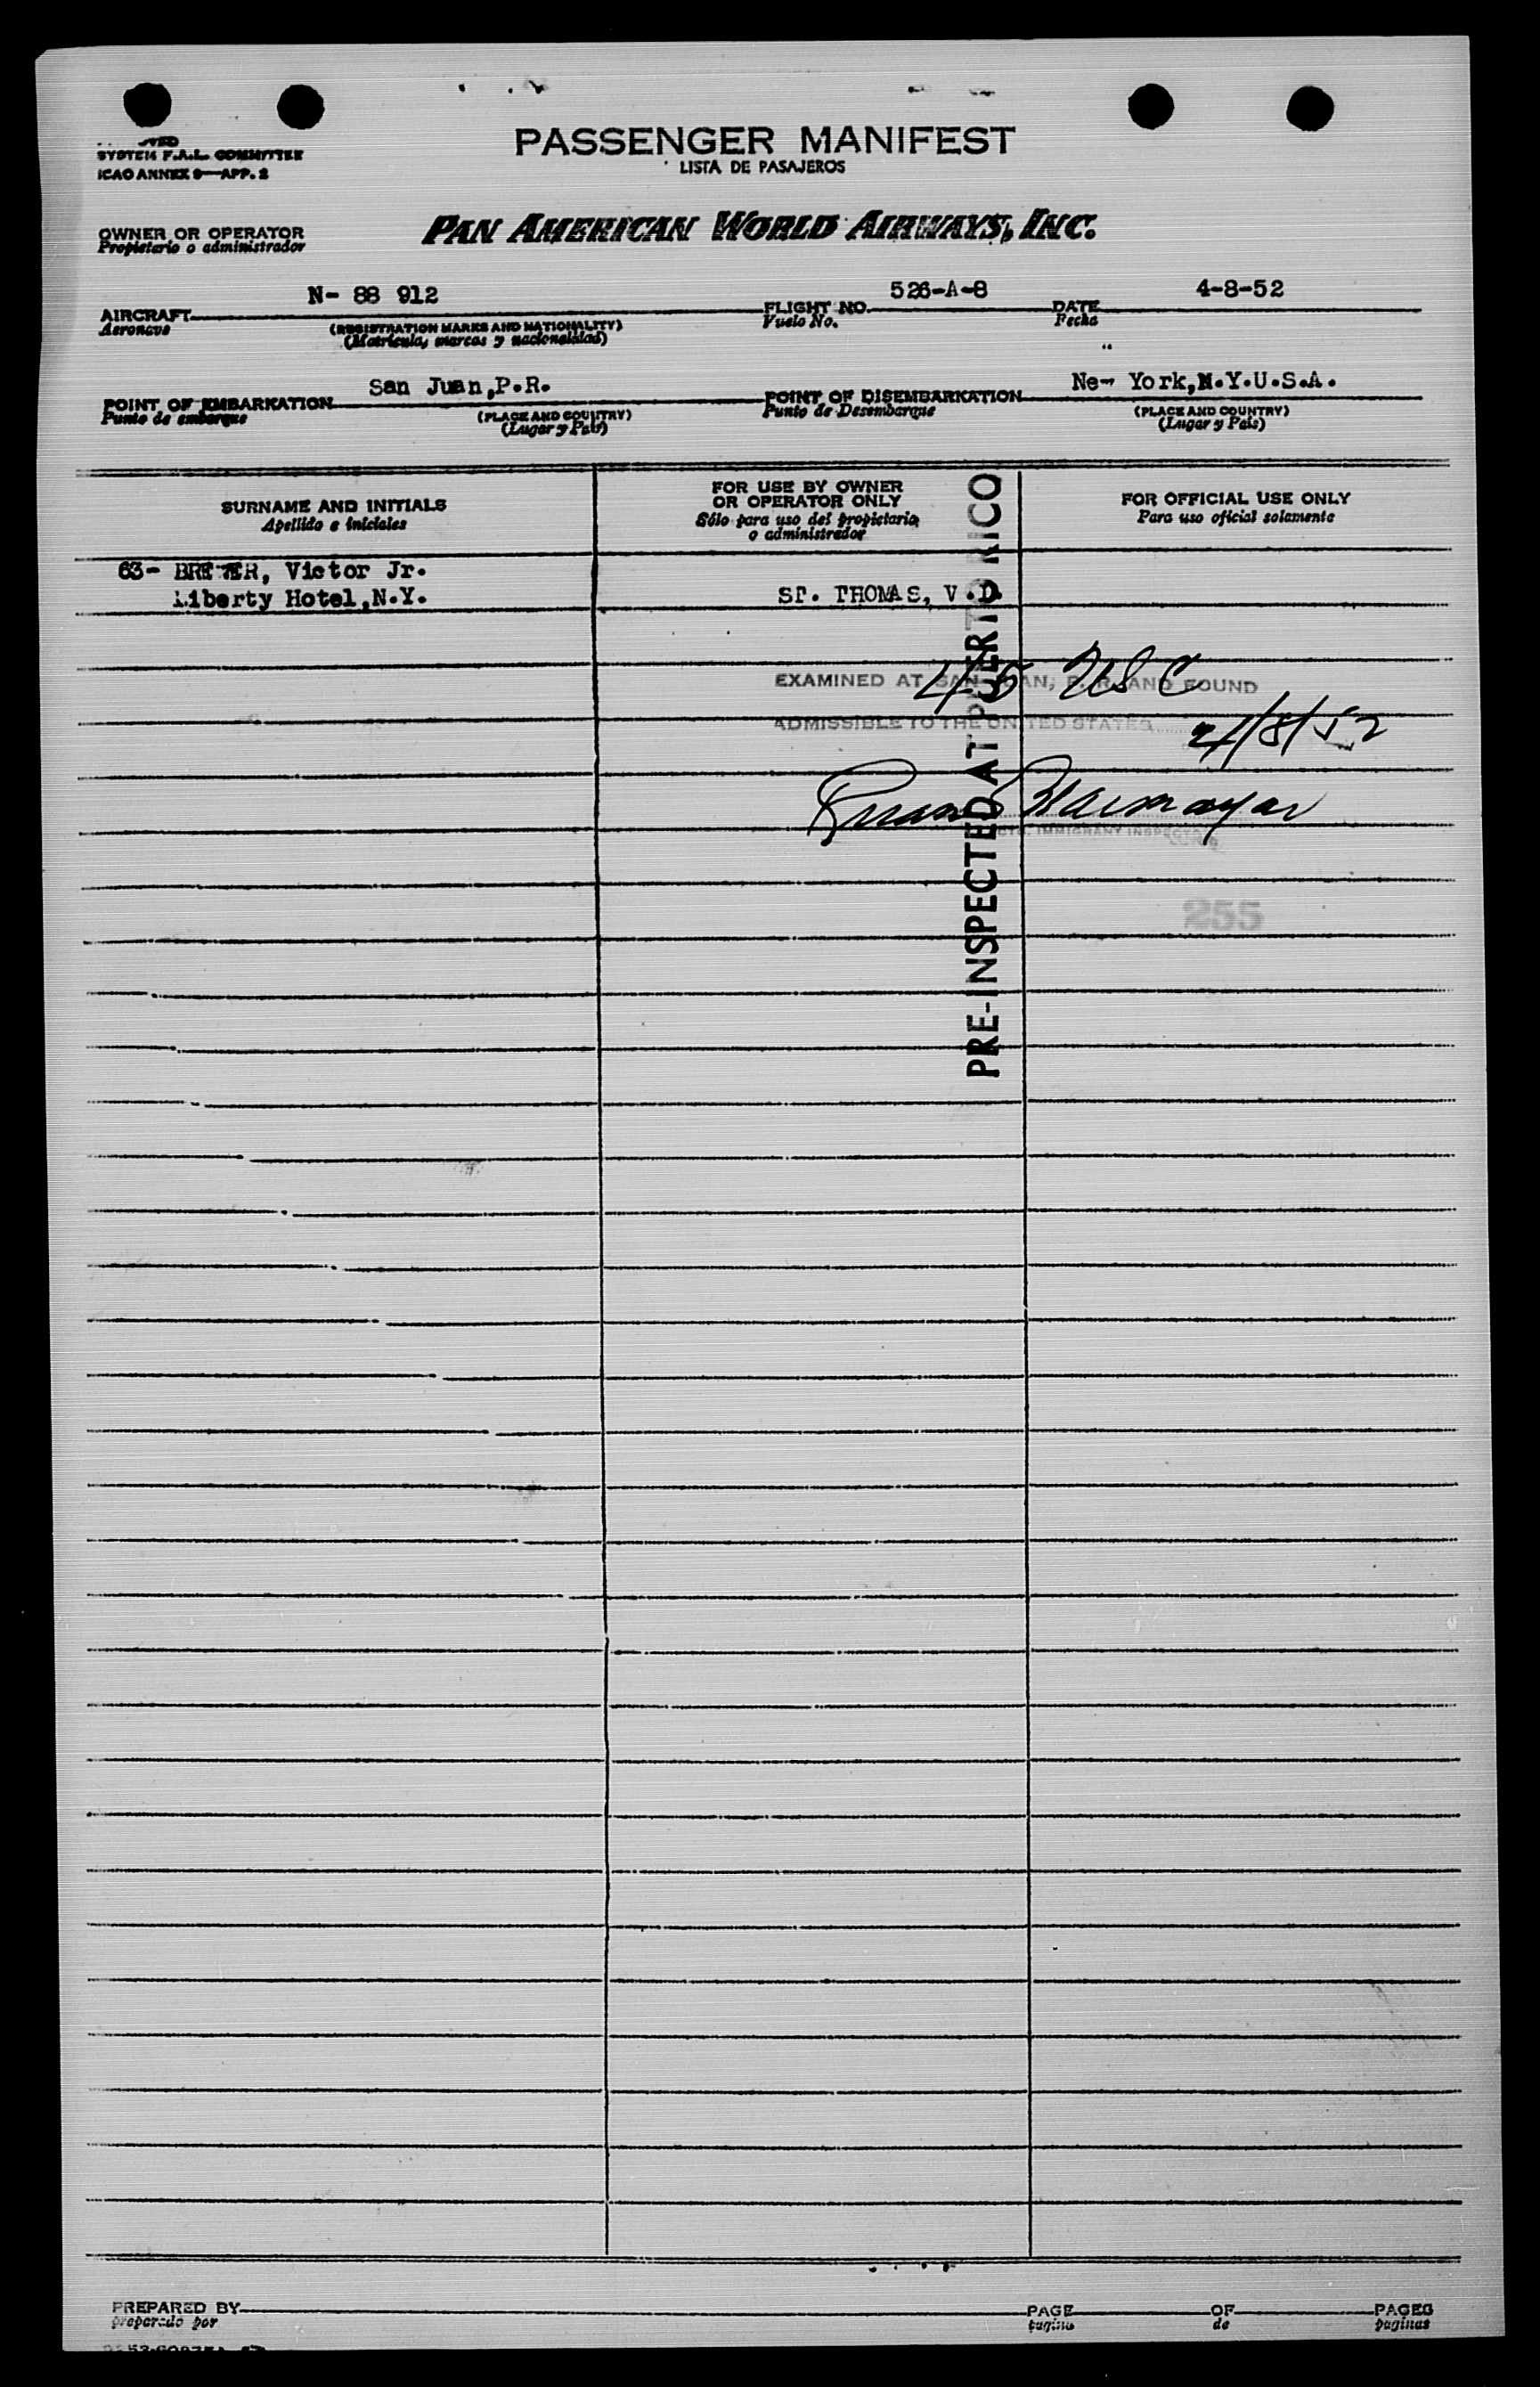 SYSTEM F.A.L. COMMITTEE
ICAO ANNEX 9—APP. 2
PASSENGER MANIFEST
LISTA DE PASAJEROS
OWNER OR OPERATOR
Propietario o administrador
PAN AMERICAN WORLD AIRWAYS, INC.
AIRCRAFT N- 88 912
Aeronave
(REGISTRATION MARKS AND NATIONALITY)
(Matricula, marcas y nacionalidad)
FLIGHT NO. 526-A-8
Vuelo No.
DATE 4-8-52
Fecha
POINT OF EMBARKATION San Juan,P.R.
Punto de embarque
(PLACE AND COUNTRY)
(Lugar y País)
POINT OF DISEMBARKATION Ne York,N.Y.U.S.A.
Punto de Desembarque
(PLACE AND COUNTRY)
(Lugar y País)
SURNAME AND INITIALS
Apellido e iniciales
FOR USE BY OWNER
OR OPERATOR ONLY
Sólo para uso del propietario
o administrador
FOR OFFICIAL USE ONLY
Para uso oficial solamente
63- Victor Jr.
Liberty Hotel,N.Y.
ST. THOMAS, V.I.
PRE-INSPECTED AT PUERTO RICO
EXAMINED AT SAN JUAN, P. R. AND FOUND
ADMISSIBLE TO THE UNITED STATES
USC
4/8/52
IMMIGRANT INSPECTOR
255
PREPARED BY
preparado por
PAGE OF PAGES
pagina de paginas